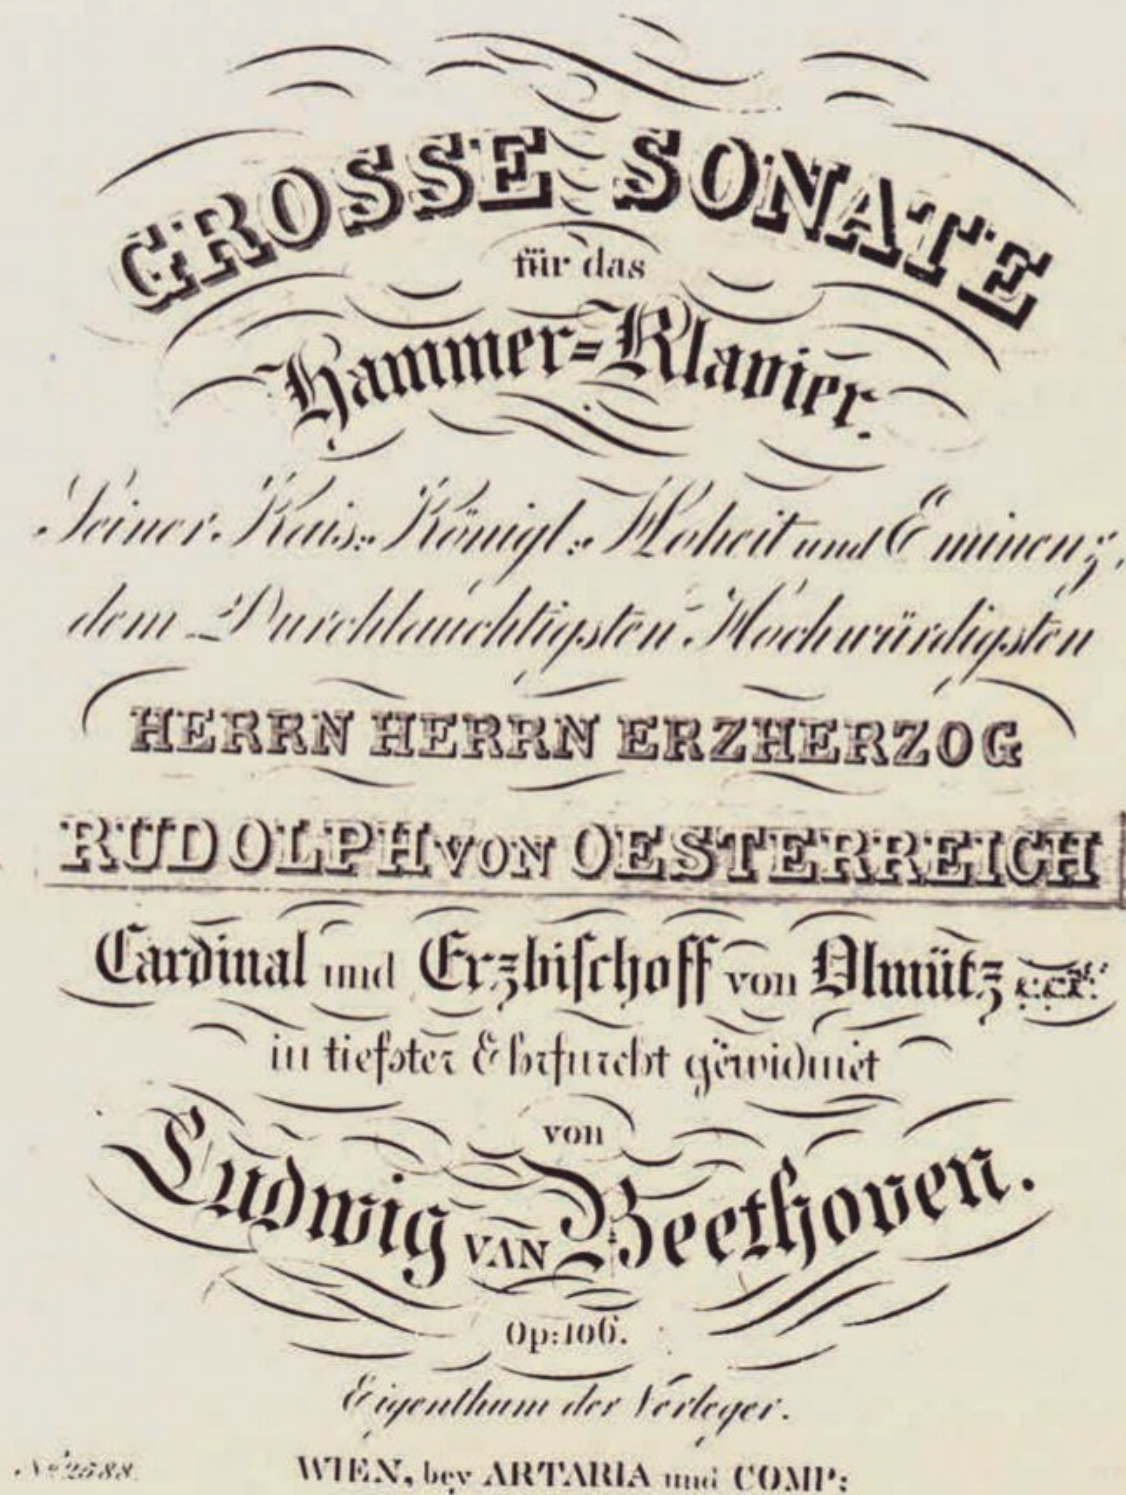 GROSSE SONATE
für das
Hammer=Klavier.
Seiner Kais: Königl: Hoheit und Eminenz,
dem Durchlauchtigsten Hochwürdigsten
HERRN HERRN ERZHERZOG
RUDOLPH VON OESTERREICH
Cardinal und Erzbischoff von Olmütz
in tiefster Ehrfurcht gewidmet
von
Ludwig VAN Beethoven.
Op: 106.
Eigenthum der Verleger.
No 2588.
WIEN, bey ARTARIA und COMP: